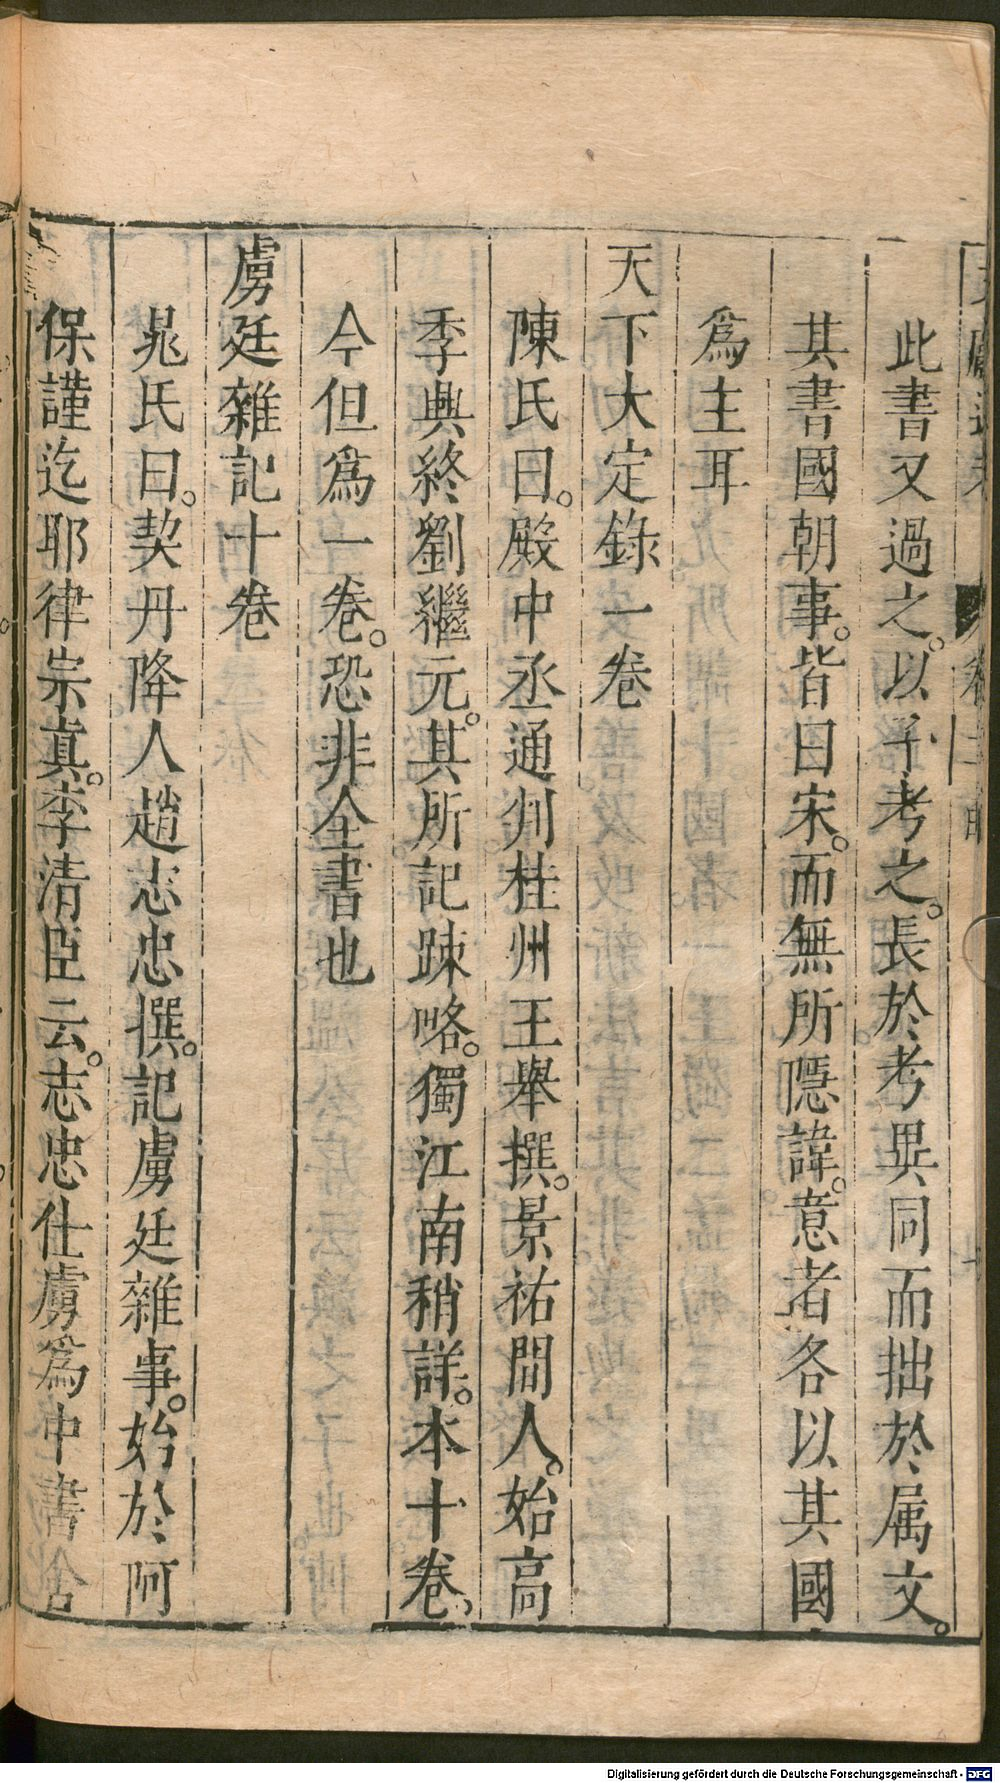 此書又過之。以予考之。長於考異同而拙於属文。
其書國朝事。皆曰宋。而無所隱諱。意者各以其國
爲主耳
天下大定錄一卷
陳氏曰。殿中丞通判桂州王舉撰。景祐間人。始高
季興終劉繼元。其所記踈略。獨江南稍詳。本十卷。
今但爲一卷。恐非全書也
虜廷雜記十卷
晁氏曰。契丹降人趙志忠撰。記虜廷雜事。始於阿
保謹迄耶律宗真。李清臣云。志忠仕虜爲中書舍
Digitalisierung gefördert durch die Deutsche Forschungsgemeinschaft - DFG